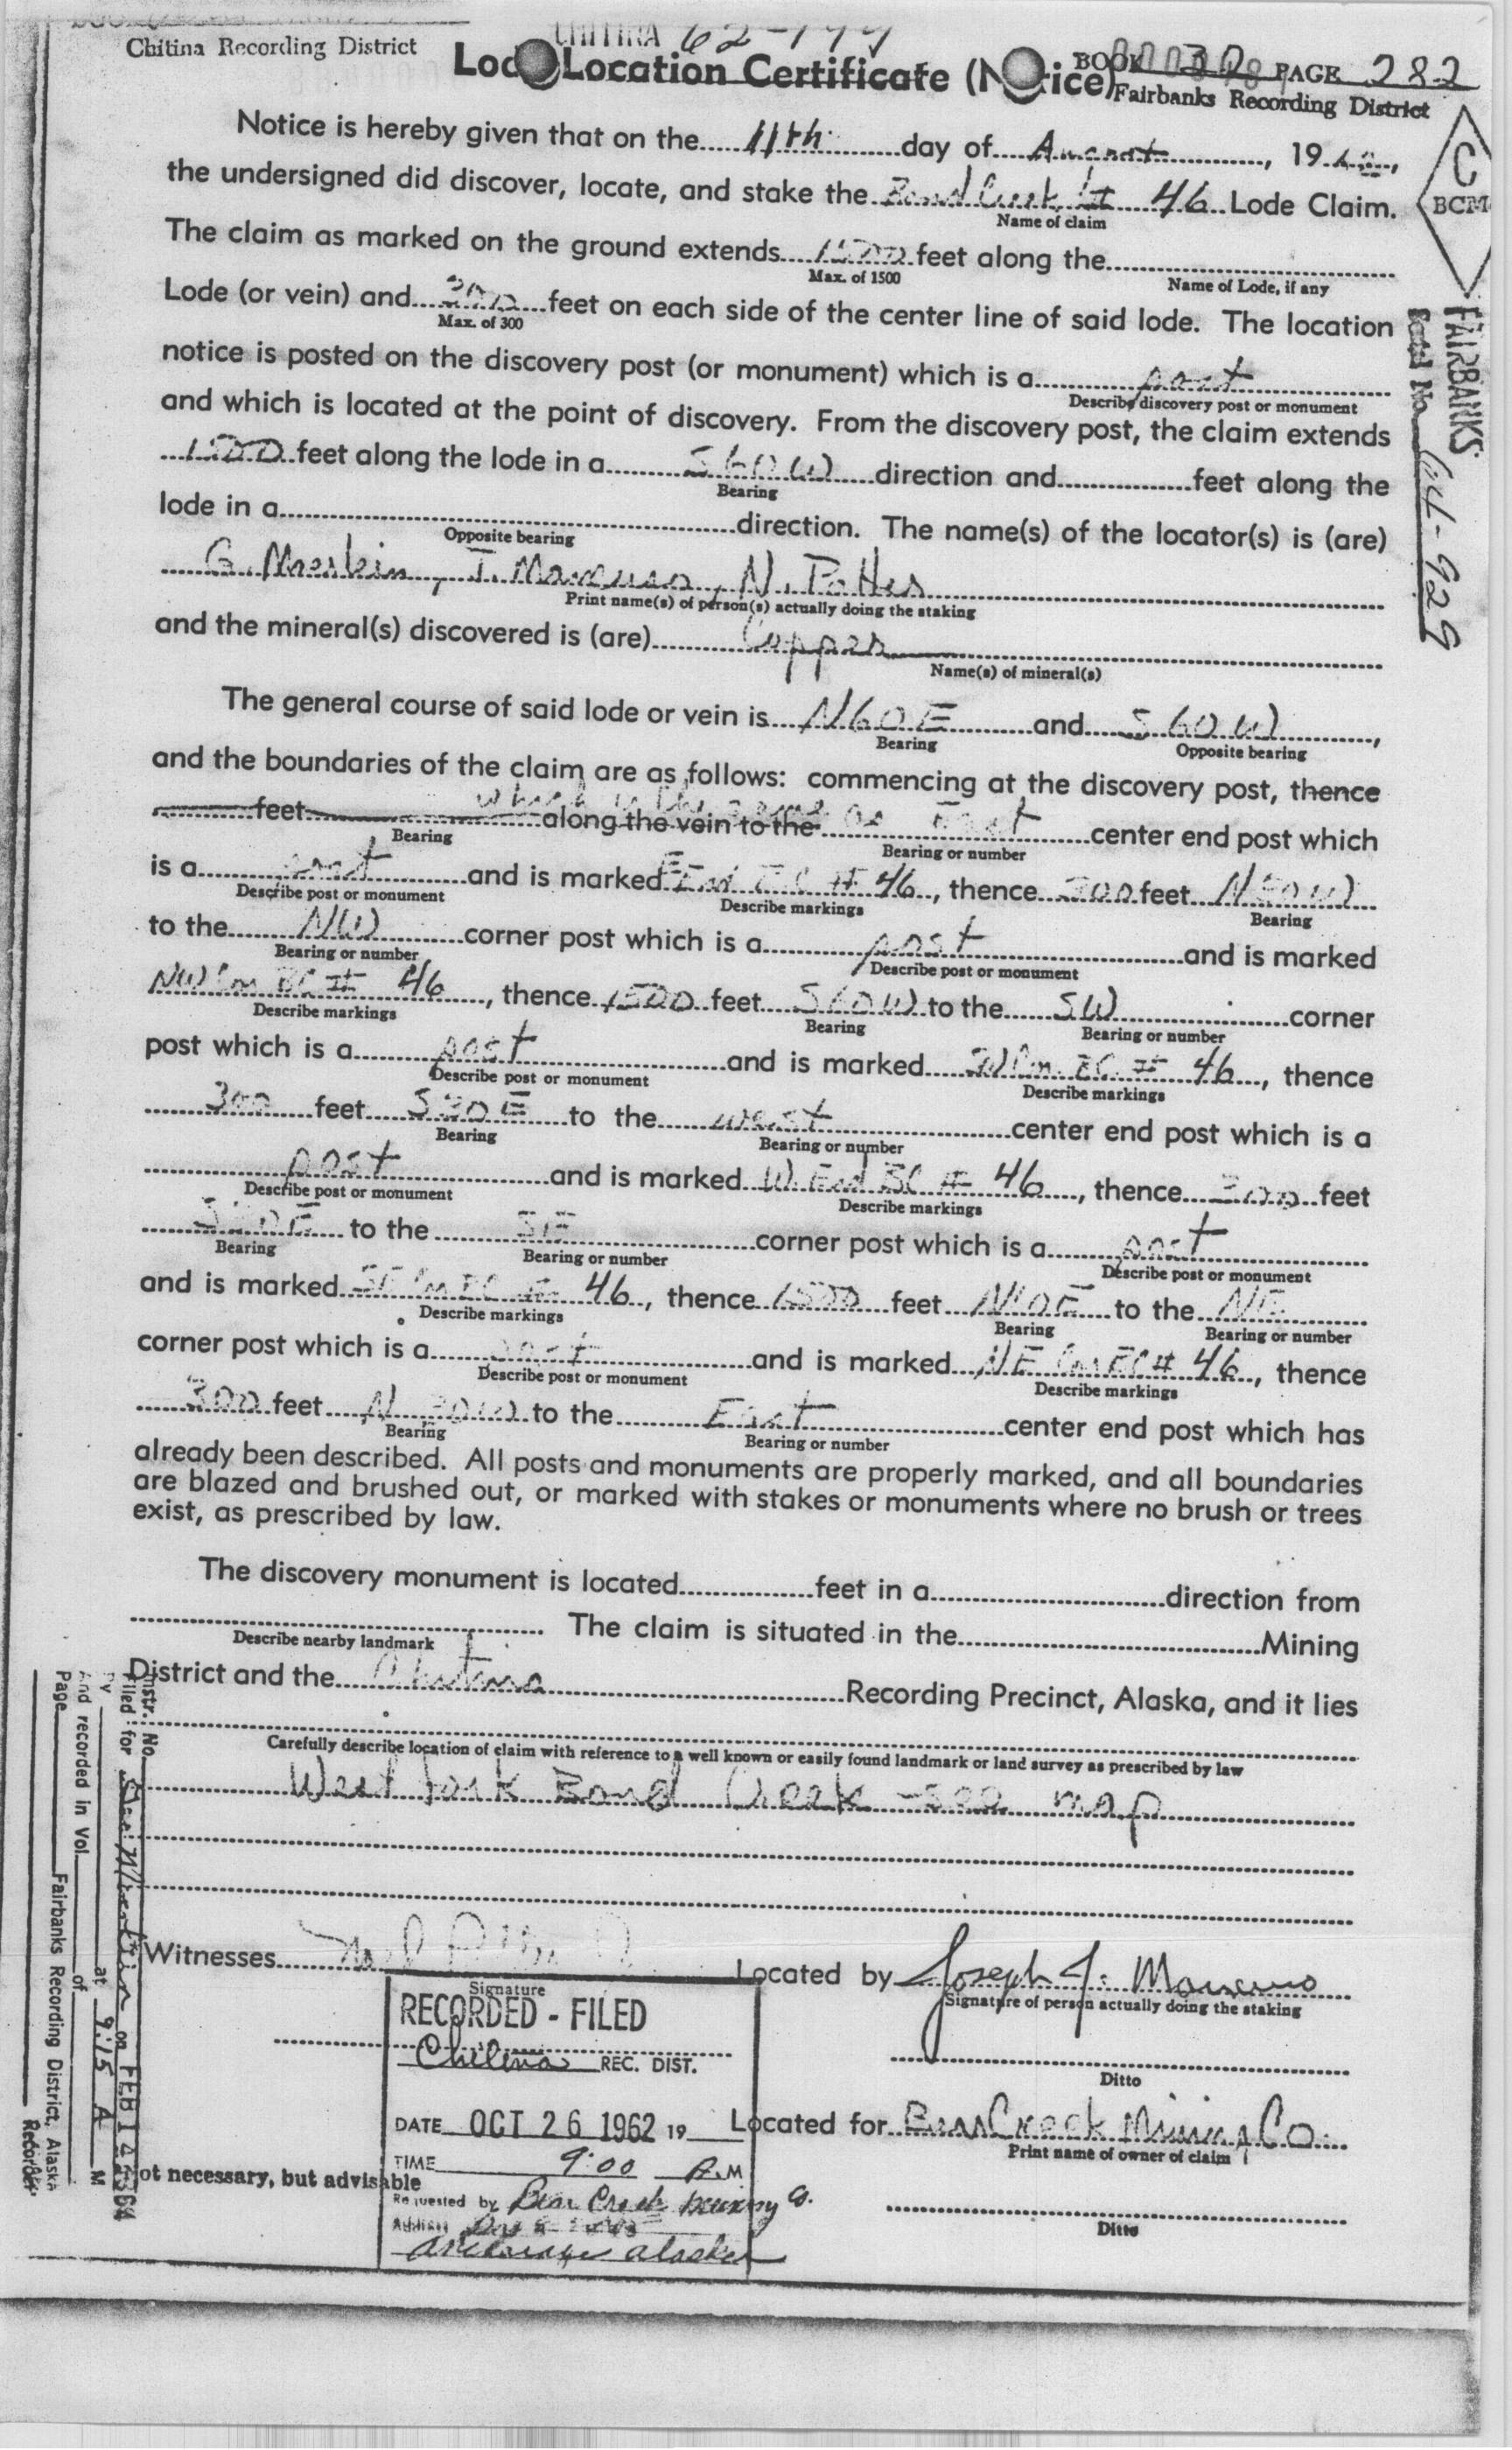 CHITINA 62-
Chitina Recording District
Lode Location Certificate (Notice)
BOOK PAGE 282
Fairbanks Recording District
Notice is hereby given that on the 11th day of August, 19
the undersigned did discover, locate, and stake the Bond Creek # 46 Lode Claim.
Name of claim
C
BCM
The claim as marked on the ground extends 1500 feet along the
Max. of 1500 Name of Lode, if any
Lode (or vein) and 300 feet on each side of the center line of said lode. The location
Max. of 300
FAIRBANKS
notice is posted on the discovery post (or monument) which is a post
Describe discovery post or monument
and which is located at the point of discovery. From the discovery post, the claim extends
1500 feet along the lode in a S60W direction and feet along the
Bearing
64-929
lode in a direction. The name(s) of the locator(s) is (are)
Opposite bearing
G. J. N. Potter
Print name(s) of person(s) actually doing the staking
and the mineral(s) discovered is (are) Copper
Name(s) of mineral(s)
The general course of said lode or vein is N60E and S60W,
Bearing Opposite bearing
and the boundaries of the claim are as follows: commencing at the discovery post, thence
which is the same as
feet along the vein to the East center end post which
Bearing Bearing or number
is a post and is marked E End BC # 46, thence 300 feet
Describe post or monument Describe markings Bearing
to the NW corner post which is a post and is marked
Bearing or number Describe post or monument
NW Cor BC # 46, thence 1500 feet S60W to the SW corner
Describe markings Bearing Bearing or number
post which is a post and is marked SW Cor BC # 46, thence
Describe post or monument Describe markings
300 feet S30E to the west center end post which is a
Bearing Bearing or number
post and is marked W End BC # 46, thence 300 feet
Describe post or monument Describe markings
S30E to the SE corner post which is a post
Bearing Bearing or number Describe post or monument
and is marked SE Cor BC # 46, thence 1500 feet N60E to the NE
Describe markings Bearing Bearing or number
corner post which is a post and is marked NE Cor BC # 46, thence
Describe post or monument Describe markings
300 feet N 30W to the East center end post which has
Bearing Bearing or number
already been described. All posts and monuments are properly marked, and all boundaries
are blazed and brushed out, or marked with stakes or monuments where no brush or trees
exist, as prescribed by law.
The discovery monument is located feet in a direction from
The claim is situated in the Mining
Describe nearby landmark
District and the Chitina Recording Precinct, Alaska, and it lies
Carefully describe location of claim with reference to a well known or easily found landmark or land survey as prescribed by law
West fork Bond Creek - see map
Witnesses
Signature
Located by Joseph J.
Signature of person actually doing the staking
Ditto
Located for Bear Creek Mining Co.
Print name of owner of claim
Ditto
RECORDED - FILED
Chitina REC. DIST.
DATE OCT 26 1962 19
TIME 9:00 A.M
Requested by Bear Creek Mining Co.
Address
Anchorage Alaska
Not necessary, but advisable
Instr. No.
Filed for on FEB 14 1964
By at 9:15 A M
And recorded in Vol. of
Page Fairbanks Recording District, Alaska
Recorder